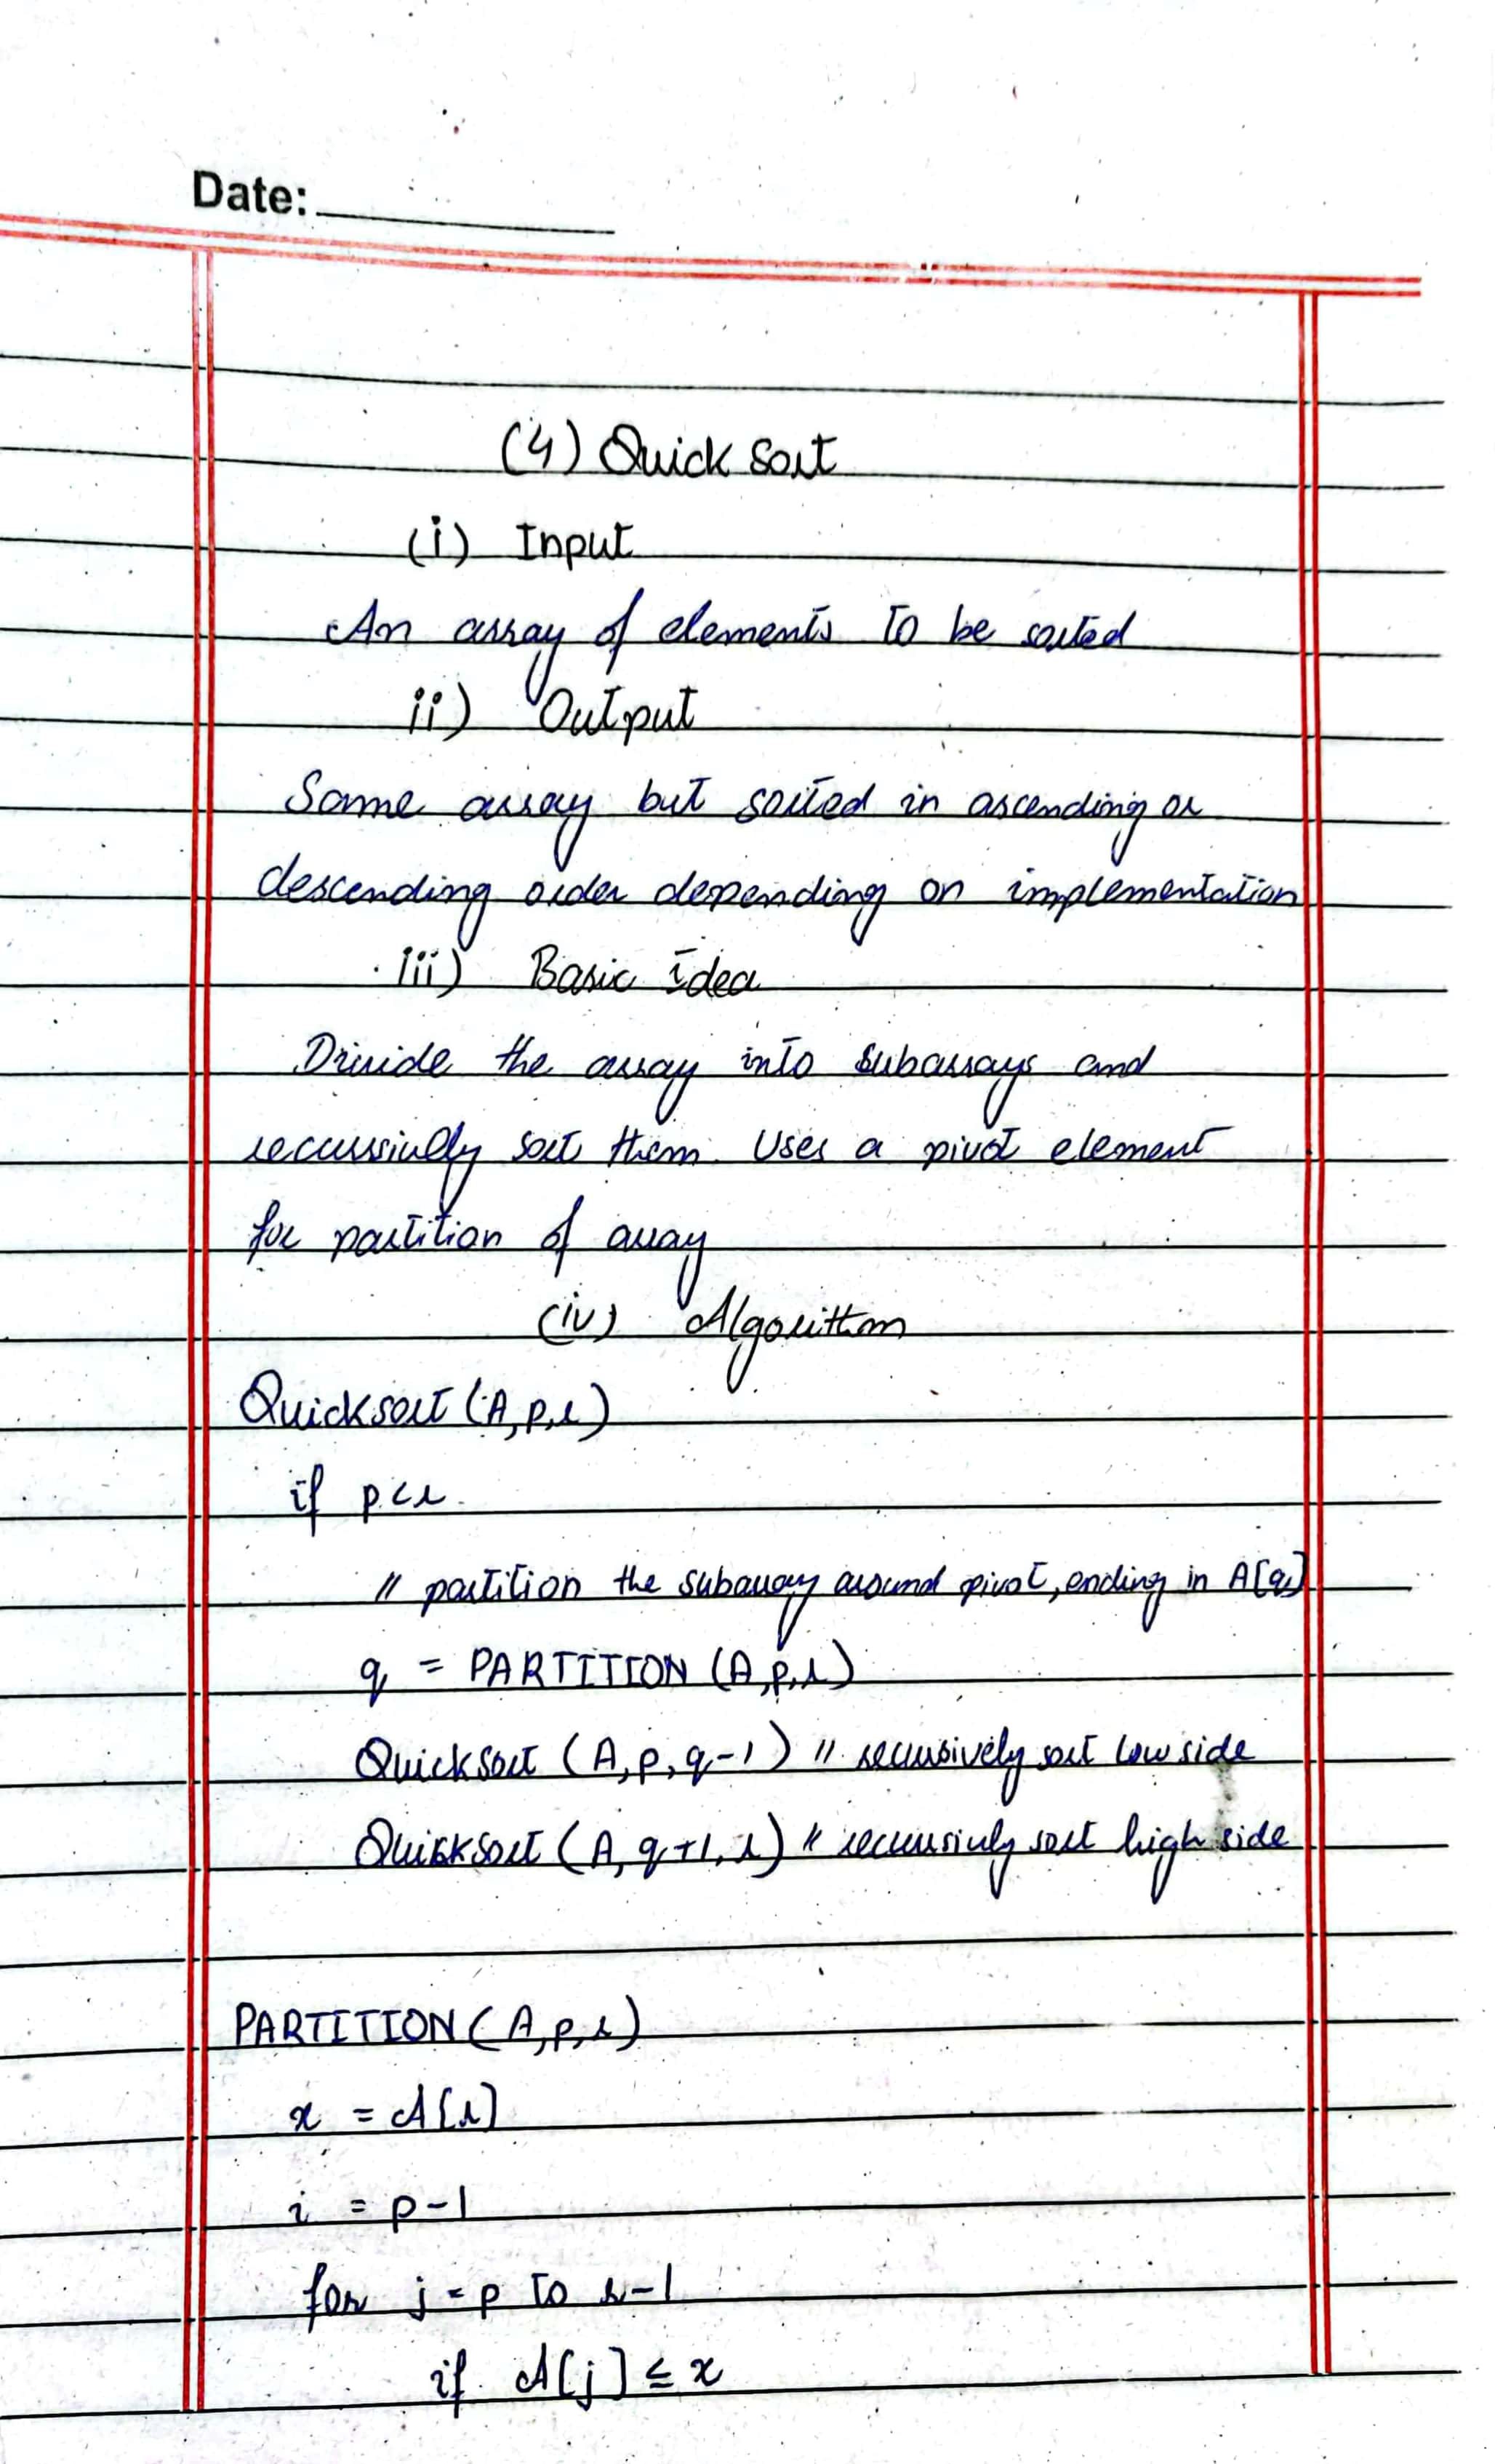 Date:
(4) Quick Sort
(i) Input
An array of elements to be sorted
ii) Output
Same array but sorted in ascending or
descending order depending on implementation
iii) Basic idea
Divide the array into subarrays and
recursively sort them. Uses a pivot element
for partition of array
(iv) Algorithm
Quicksort (A,p,r)
if p<r
// partition the subarray around pivot, ending in A[q]
q = PARTITION (A,p,r)
Quicksort (A,p,q-1) // recursively sort low side
Quicksort (A,q+1,r) // recursively sort high side
PARTITION (A,p,r)
x = A[r]
i = p-1
for j=p to r-1
if A[j] ≤ x